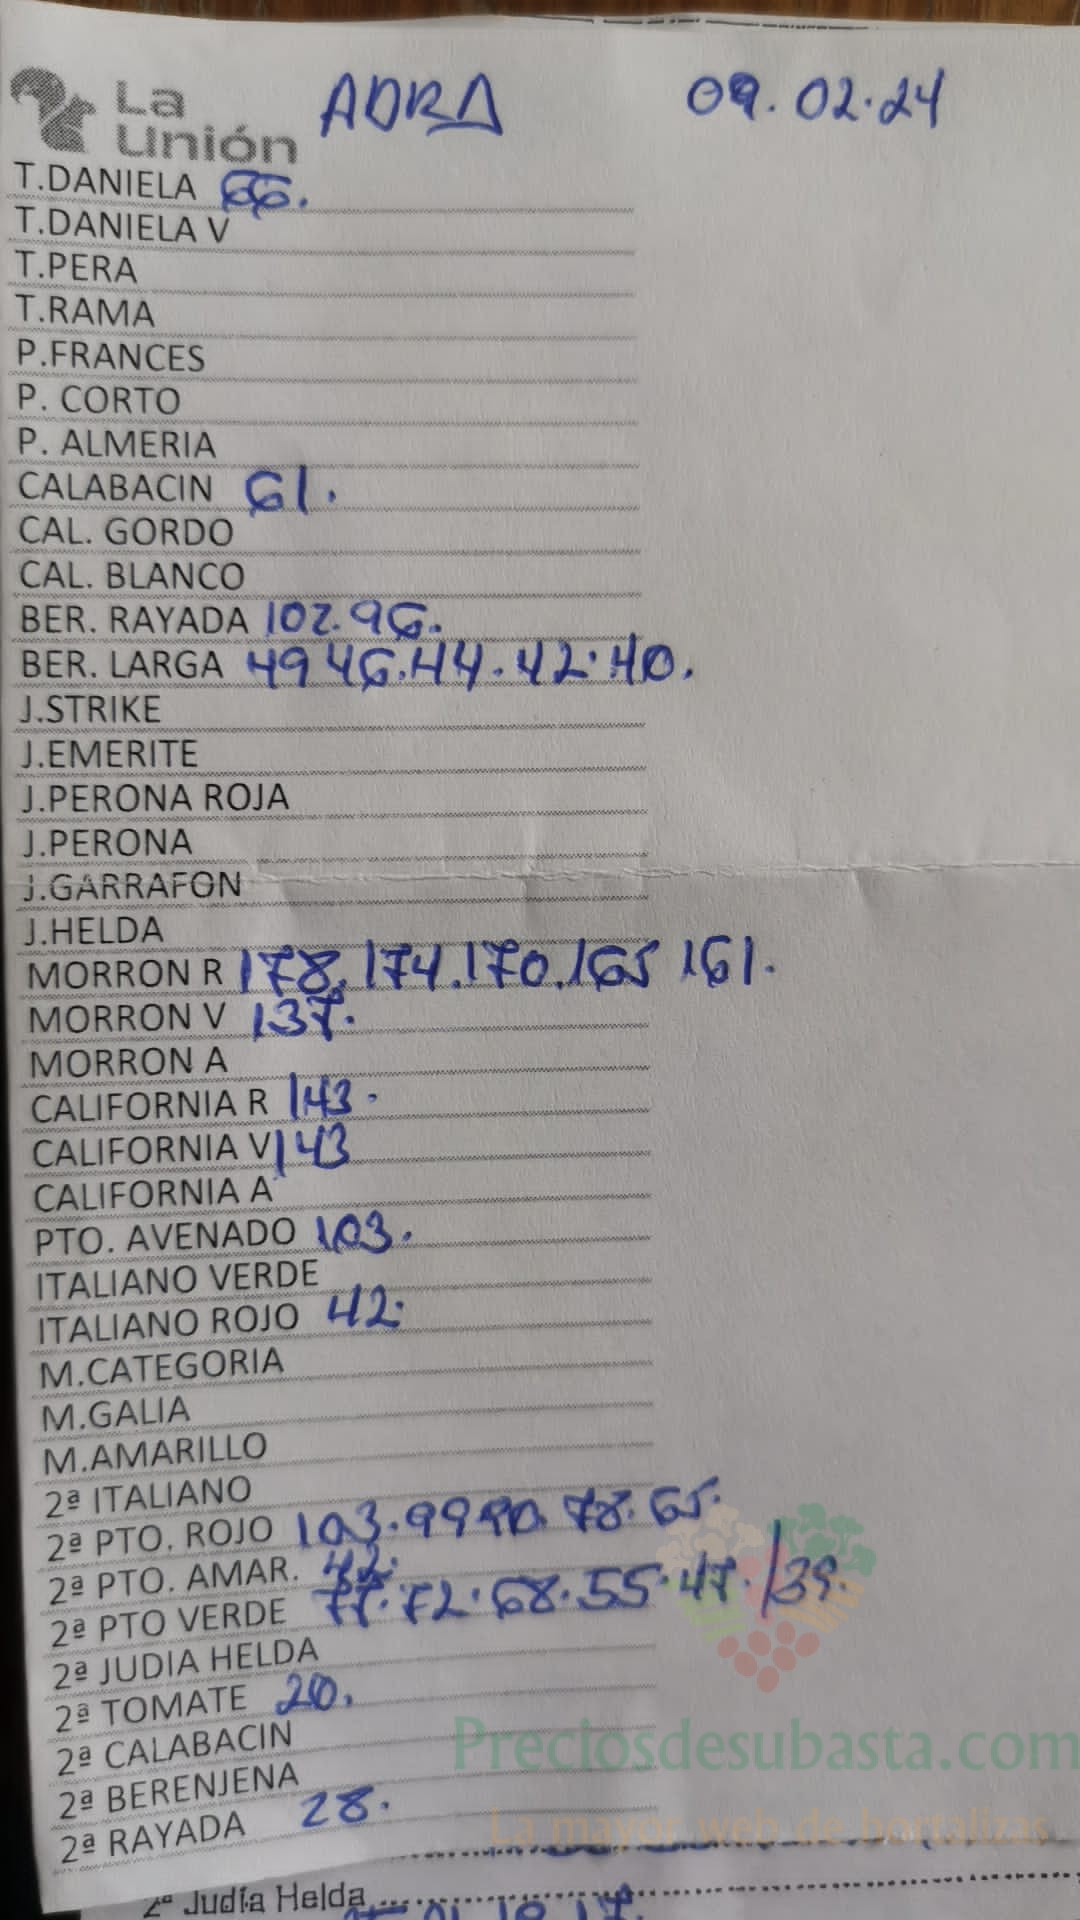 La Unión ADRA 09.02.24
T.DANIELA 66.
T.DANIELA V
T.PERA
T.RAMA
P.FRANCES
P. CORTO
P. ALMERIA
CALABACIN 61.
CAL. GORDO
CAL. BLANCO
BER. RAYADA 102.96.
BER. LARGA 49 46.44.42.40.
J.STRIKE
J.EMERITE
J.PERONA ROJA
J.PERONA
J.GARRAFON
J.HELDA
MORRON R 178.174.170.165 161.
MORRON V 137.
MORRON A
CALIFORNIA R 143.
CALIFORNIA V 143
CALIFORNIA A
PTO. AVENADO 103.
ITALIANO VERDE
ITALIANO ROJO 42.
M.CATEGORIA
M.GALIA
M.AMARILLO
2ª ITALIANO
2ª PTO. ROJO 103.99 90. 78.65.
2ª PTO. AMAR. 42.
2ª PTO VERDE 77.72.68.55.47./39.
2ª JUDIA HELDA
2ª TOMATE 20.
2ª CALABACIN
2ª BERENJENA
2ª RAYADA 28.
Preciosdesubasta.com
La mayor web de hortalizas
2ª Judía Helda